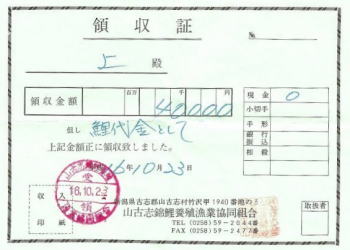 領収証
No.
上 殿
領収金額 百万 千 円 40000
現金 0
小切手
手形
銀行振込
相殺
但し 鯉代金として
上記金額正に領収致しました。
16年10月23
16.10.23
受領
収入印紙
新潟県古志郡山古志村竹沢甲1940番地の3
山古志錦鯉養殖漁業協同組合
TEL (0258)59-2044
FAX (0258)59-2477
取扱者